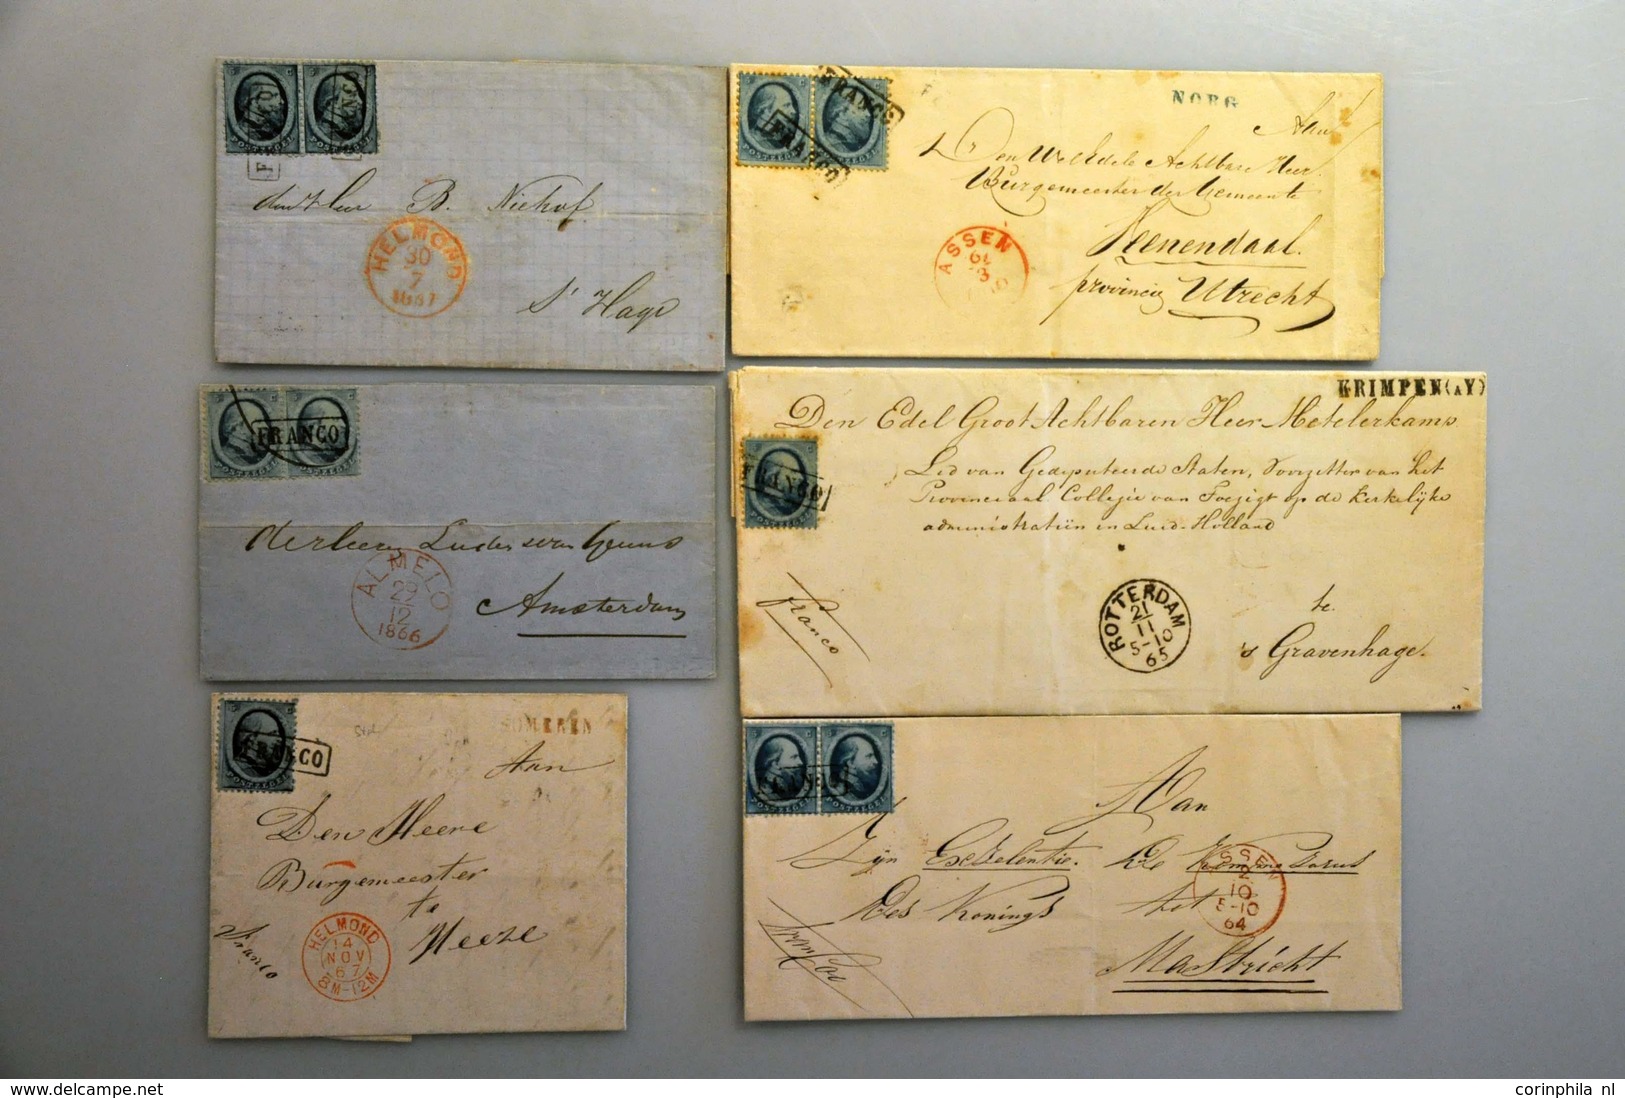 FRANCO
B. Niehof
HELMOND
30
7
S' Hage
FRANCO
FRANCO
NORG
Aan
Den Wel Edele Achtbare Heer
Burgemeester der Gemeente
Veenendaal.
provincie Utrecht
ASSEN
FRANCO
Amsterdam
ALMELO
29
12
1866
KRIMPEN (AY)
Den Edel Groot Achtbaren Heer Metelerkamp
Lid van Gedeputeerde Staten, Voorzitter van het
Provinciaal Collegie van Toezigt op de kerkelijke
administratiën in Zuid-Holland
te
's Gravenhage.
FRANCO
franco
ROTTERDAM
21
11
5-10
65
FRANCO
SOMEREN
Aan
Den Heere
Burgemeester
te
Heeze
Franco
HELMOND
14
NOV
67
8M-12M
POSTZEGEL POSTZEGEL
FRANCO
Aan
Zijn Excellentie. De
Des Konings tot
Mastricht
ASSEN
2
10
5-10
64
delcampe.net
corinphila nl